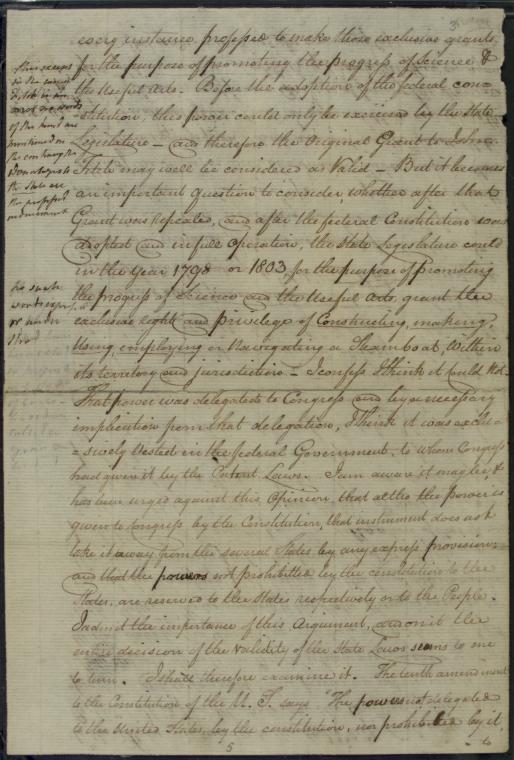 3
every instance professed to make those exclusive grants
for the purpose of promoting the progress of science &
the Useful Arts. Before the adoption of the federal con-
stitution, this power could only be exercised by the State
Legislature — and therefore the Original Grant to John
Fitch may well be considered as Valid — But it becomes
an important question to consider, whether after that
Grant was Repealed, and after the federal Constitution was
adopted and in full operation, the State Legislature could
in the Year 1798 or 1803 for the purpose of promoting
the progress of Science and the Useful Arts, grant the
exclusive right and privilege of Constructing, making,
Using, employing or Navigating a Steamboat, Within
its territory and jurisdiction — I confess I think it could Not.
That power was delegated to Congress and by a necessary
implication from that delegation, I think it was exclu-
-sively Vested in the federal Government, to whom Congress
had given it by the Patent Laws. I am aware it may be, &
has been urged against this Opinion, that altho the power is
given to Congress by the Constitution, that instrument does not
take it away from the several States by any express provision,
and that the powers not prohibited by the constitution to the
States, are reserved to the States respectively or to the People.
I admit the importance of this Argument, and on it the
entire decision of the Validity of the State Laws seems to me
to turn. I shall therefore examine it. The tenth amendment
to the Constitution of the U. S. says "The powers not delegated
to the United States, by the constitution, nor prohibited by it,
to
5
this seems
of the
mentioned in
the contrary the
the State are
the
predominant
no such
words
or under